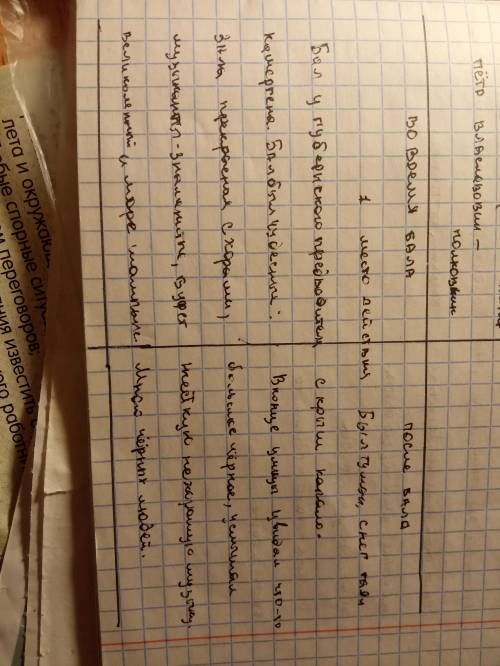 Пётр Владиславович –
полковник
ВО ВРЕМЯ БАЛА
ПОСЛЕ БАЛА
1 место действия
Был туман, снег таял
Бал у губернского предводителя
с крыш капало.
камергера. Бал был чудесный:
В конце улицы увидал что-то
зала прекрасная с хорами,
большое чёрное, услышал
музыканты - знаменитые, буфет
жёсткую нехорошую музыку.
великолепный и море
Много чёрных людей.
лета и
спорные
переговоров;
известить